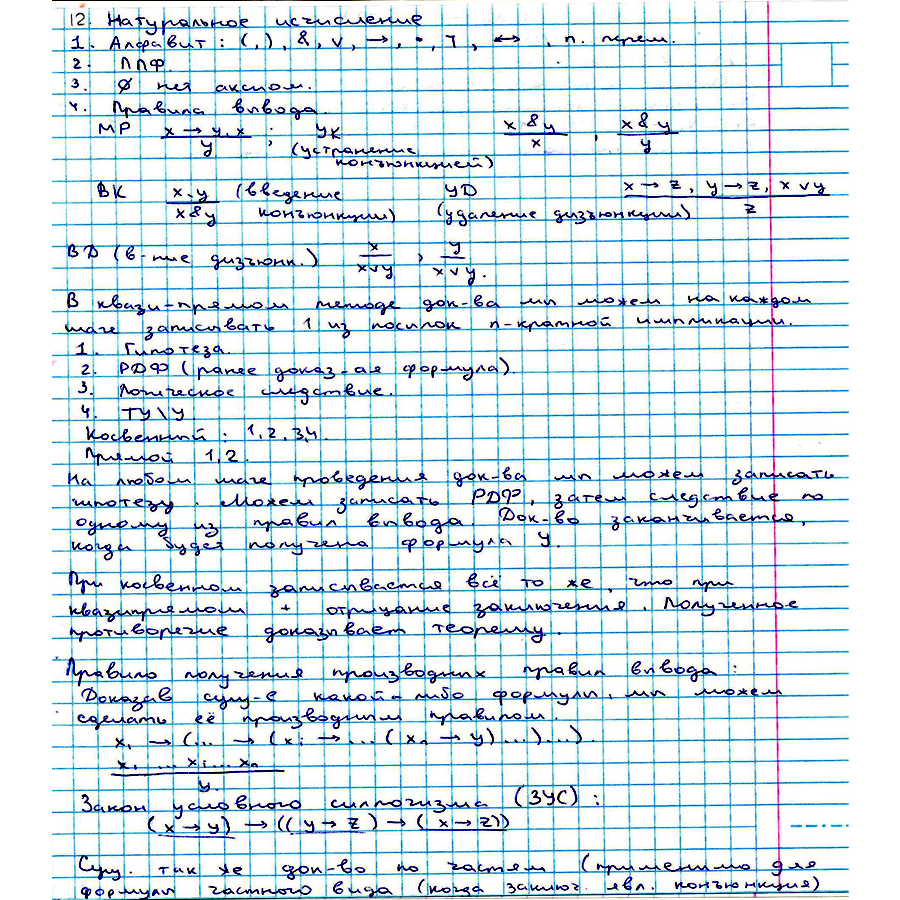 12. Натуральное исчисление
1. Алфавит: (,), &, v, →, •, ┐, ↔, п. перем.
2. ППФ.
3. ∅ нет аксиом.
4. Правила вывода
МР x → y, x / y ; УК (устранение конъюнкцией) x & y / x , x & y / y
ВК x, y / x & y (введение конъюнкции) УД (удаление дизъюнкции) x → z, y → z, x v y / z
ВД (в-ние дизъюнк.) x / x v y , y / x v y.
В квази-прямом методе док-ва мы можем на каждом
шаге записывать 1 из посылок n-кратной импликации.
1. Гипотеза.
2. РДФ (ранее доказ-ая формула)
3. Логическое следствие.
4. ТУ\У
Косвенный: 1,2,3,4.
Прямой 1,2.
На любом шаге проведения док-ва мы можем записать
гипотезу. Можем записать РДФ, затем следствие по
одному из правил вывода. Док-во заканчивается,
когда будет получена формула У.
При косвенном записывается всё то же, что при
квазипрямом + отрицание заключения. Полученное
противоречие доказывает теорему.
Правило получения производных правил вывода:
Доказав сущ-е какой-либо формулы, мы можем
сделать её производным правилом.
x₁ → (... → (xᵢ → ... (xₙ → y)...)...).
x₁ ... xᵢ ... xₙ
y.
Закон условного силлогизма (ЗУС):
(x → y) → ((y → z) → (x → z))
Сущ. так же док-во по частям (применимо для
формулы частного вида (когда заключ. явл. конъюнкция)